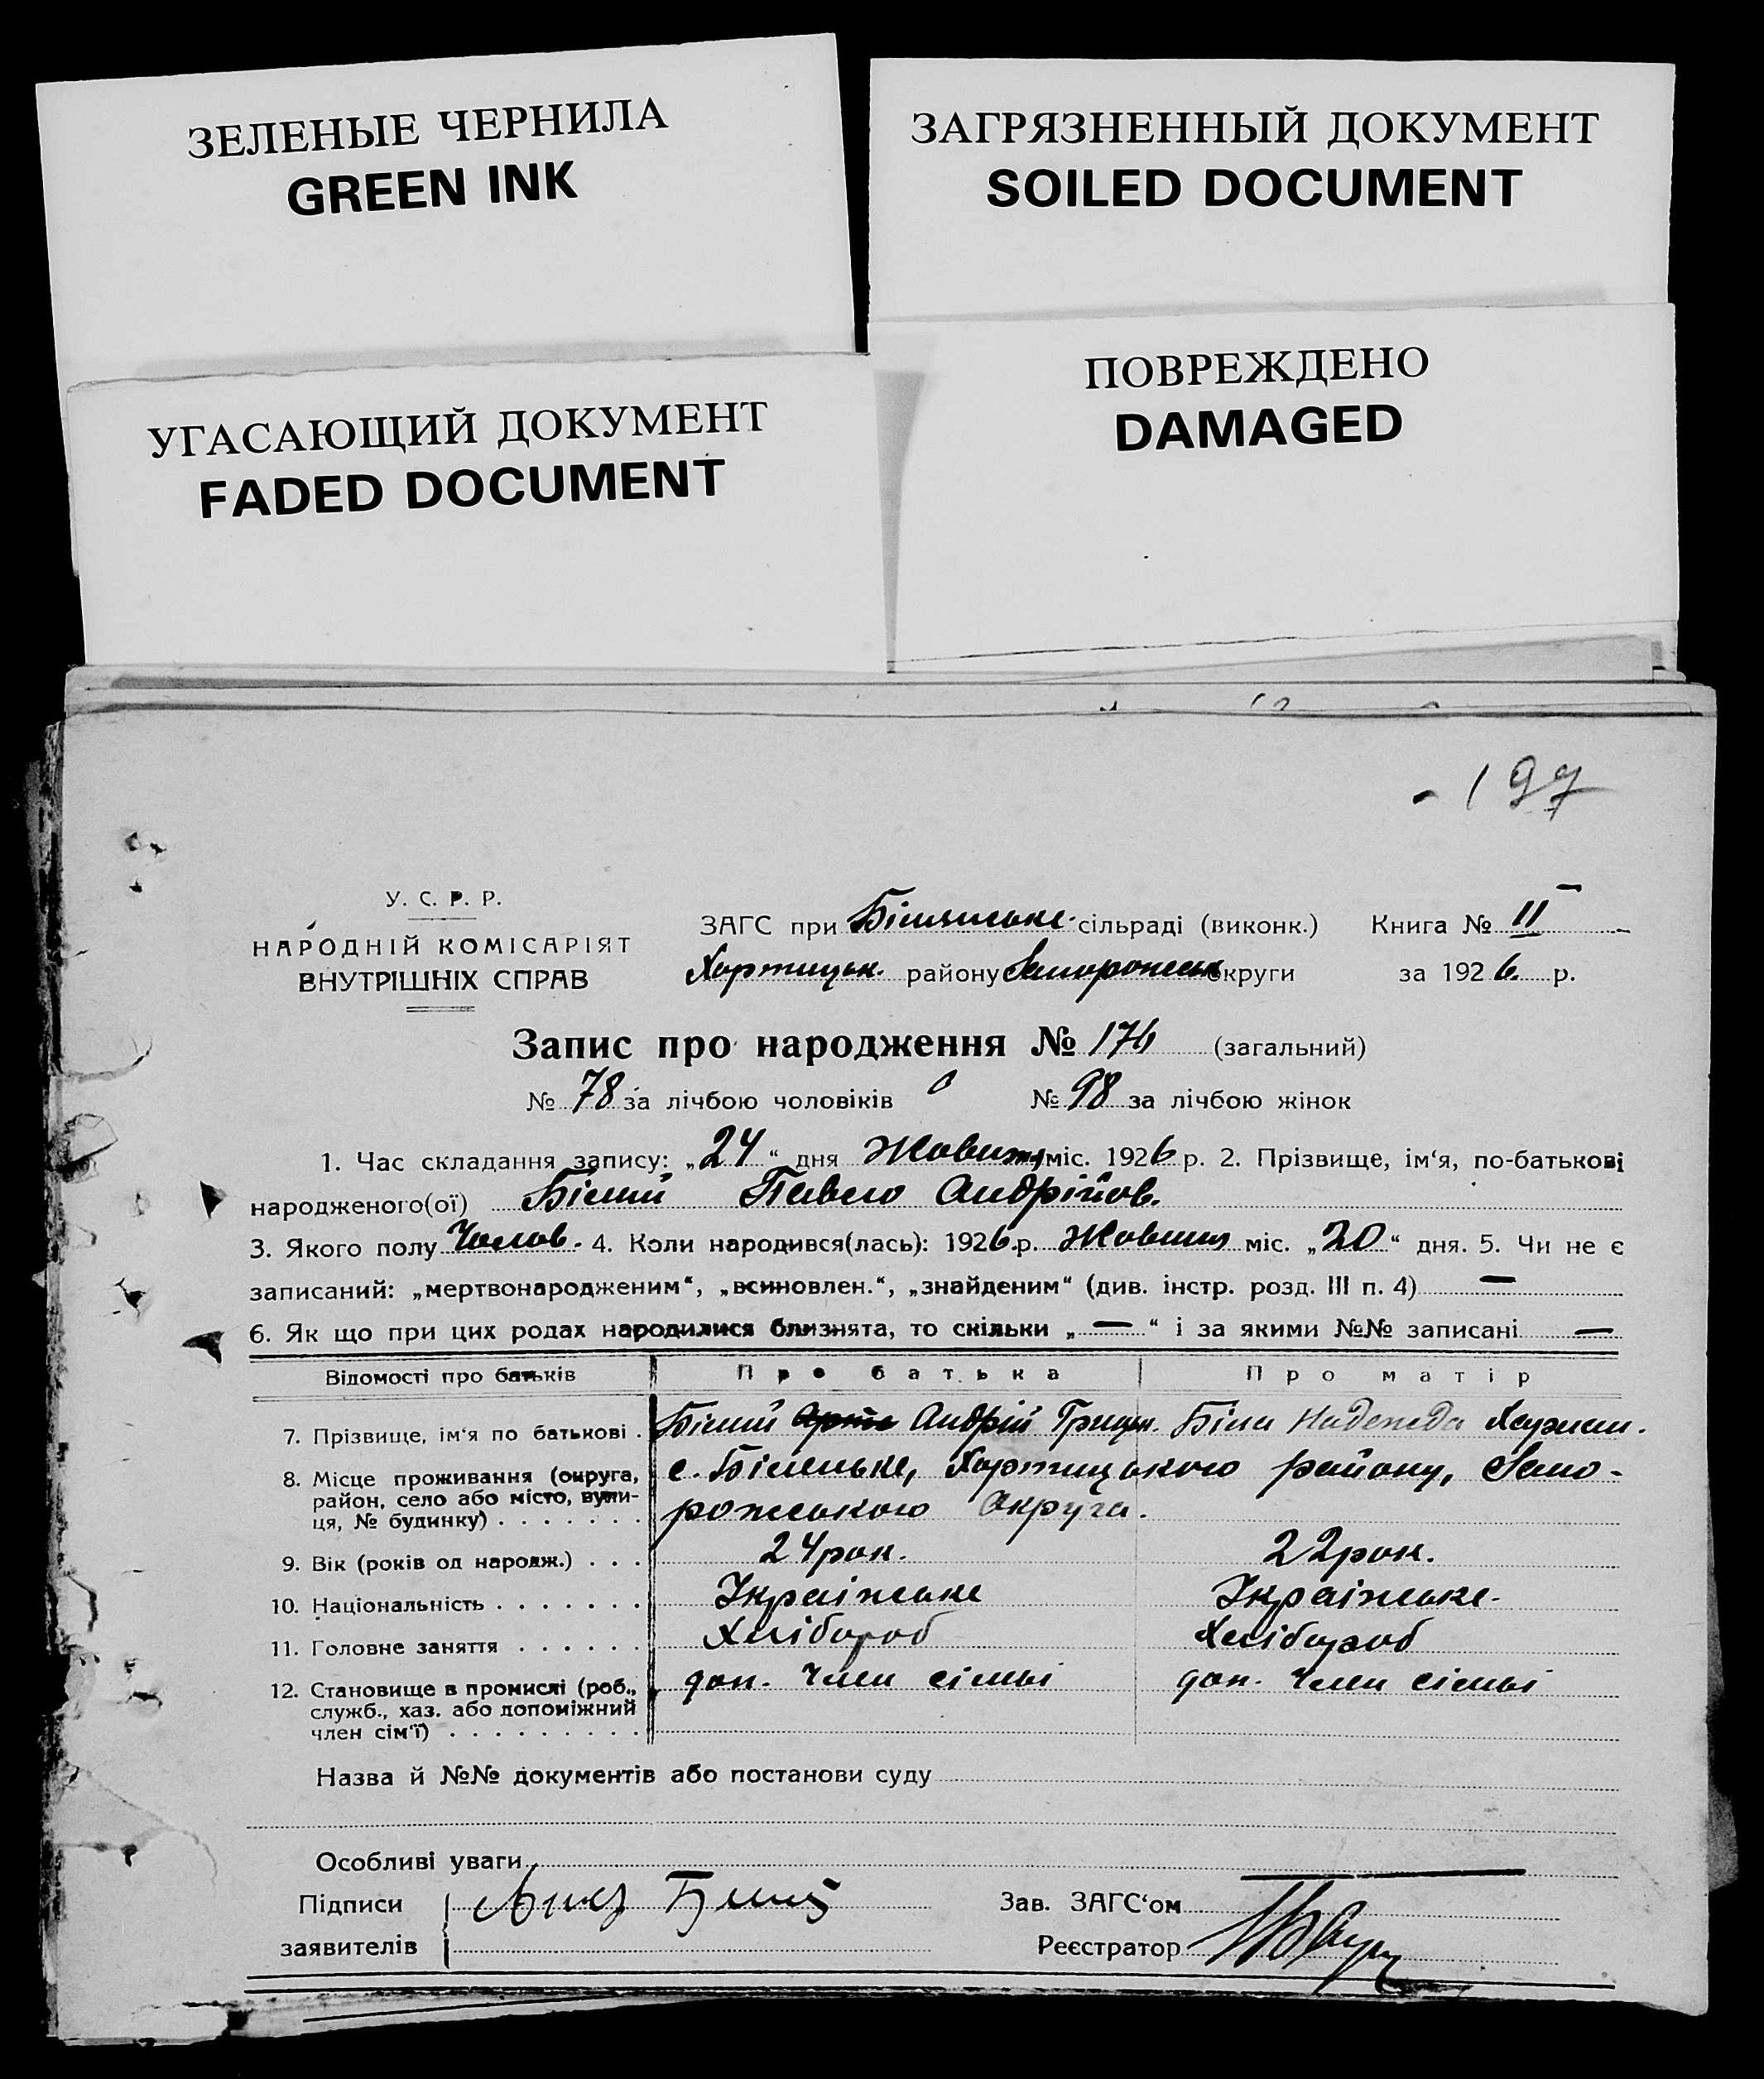 ЗЕЛЕНЫЕ ЧЕРНИЛА
GREEN INK
ЗАГРЯЗНЕННЫЙ ДОКУМЕНТ
SOILED DOCUMENT
УГАСАЮЩИЙ ДОКУМЕНТ
FADED DOCUMENT
ПОВРЕЖДЕНО
DAMAGED
197
У. С. Р. Р.
НАРОДНІЙ КОМІСАРІЯТ
ВНУТРІШНІХ СПРАВ
ЗАГС при сільраді (виконк.) Книга № II
Хортицьк. району Запорожськ округи за 1926 р.
Запис про народження № 176 (загальний)
№ 78 за лічбою чоловіків № 98 за лічбою жінок
1. Час складання запису: „24“ дня Жовтня міс. 1926 р. 2. Прізвище, ім‘я, по-батькові
народженого(ої) Білий Павло Андрійов.
3. Якого полу Чолов. 4. Коли народився(лась): 1926 р. Жовтня міс. „20“ дня. 5. Чи не є
записаний: „мертвонародженим“, „всиновлен.“, „знайденим“ (див. інстр. розд. III п. 4) —
6. Як що при цих родах народилися близнята, то скільки „—“ і за якими №№ записані —
Відомості про батьків Про батька Про матір
7. Прізвище, ім‘я по батькові . Білий Андрій Грицьк. Біла Надежда
8. Місце проживання (округа, район, село або місто, вули-ця, № будинку) . . . . . . . с. Біленьке, Хортицького району, Запо-
рожського Округа.
9. Вік (років од народж.) . . . 24 рок. 22 рок.
10. Національність . . . . . . . Українське Українське
11. Головне заняття . . . . . . Хлібороб Хлібороб
12. Становище в промислі (роб., служб., хаз. або допоміжний член сім‘ї) . . . . . . . . . доп. член сімьі доп. член сімьі
Назва й №№ документів або постанови суду
Особливі уваги
Підписи Зав. ЗАГС‘ом
заявителів Реєстратор